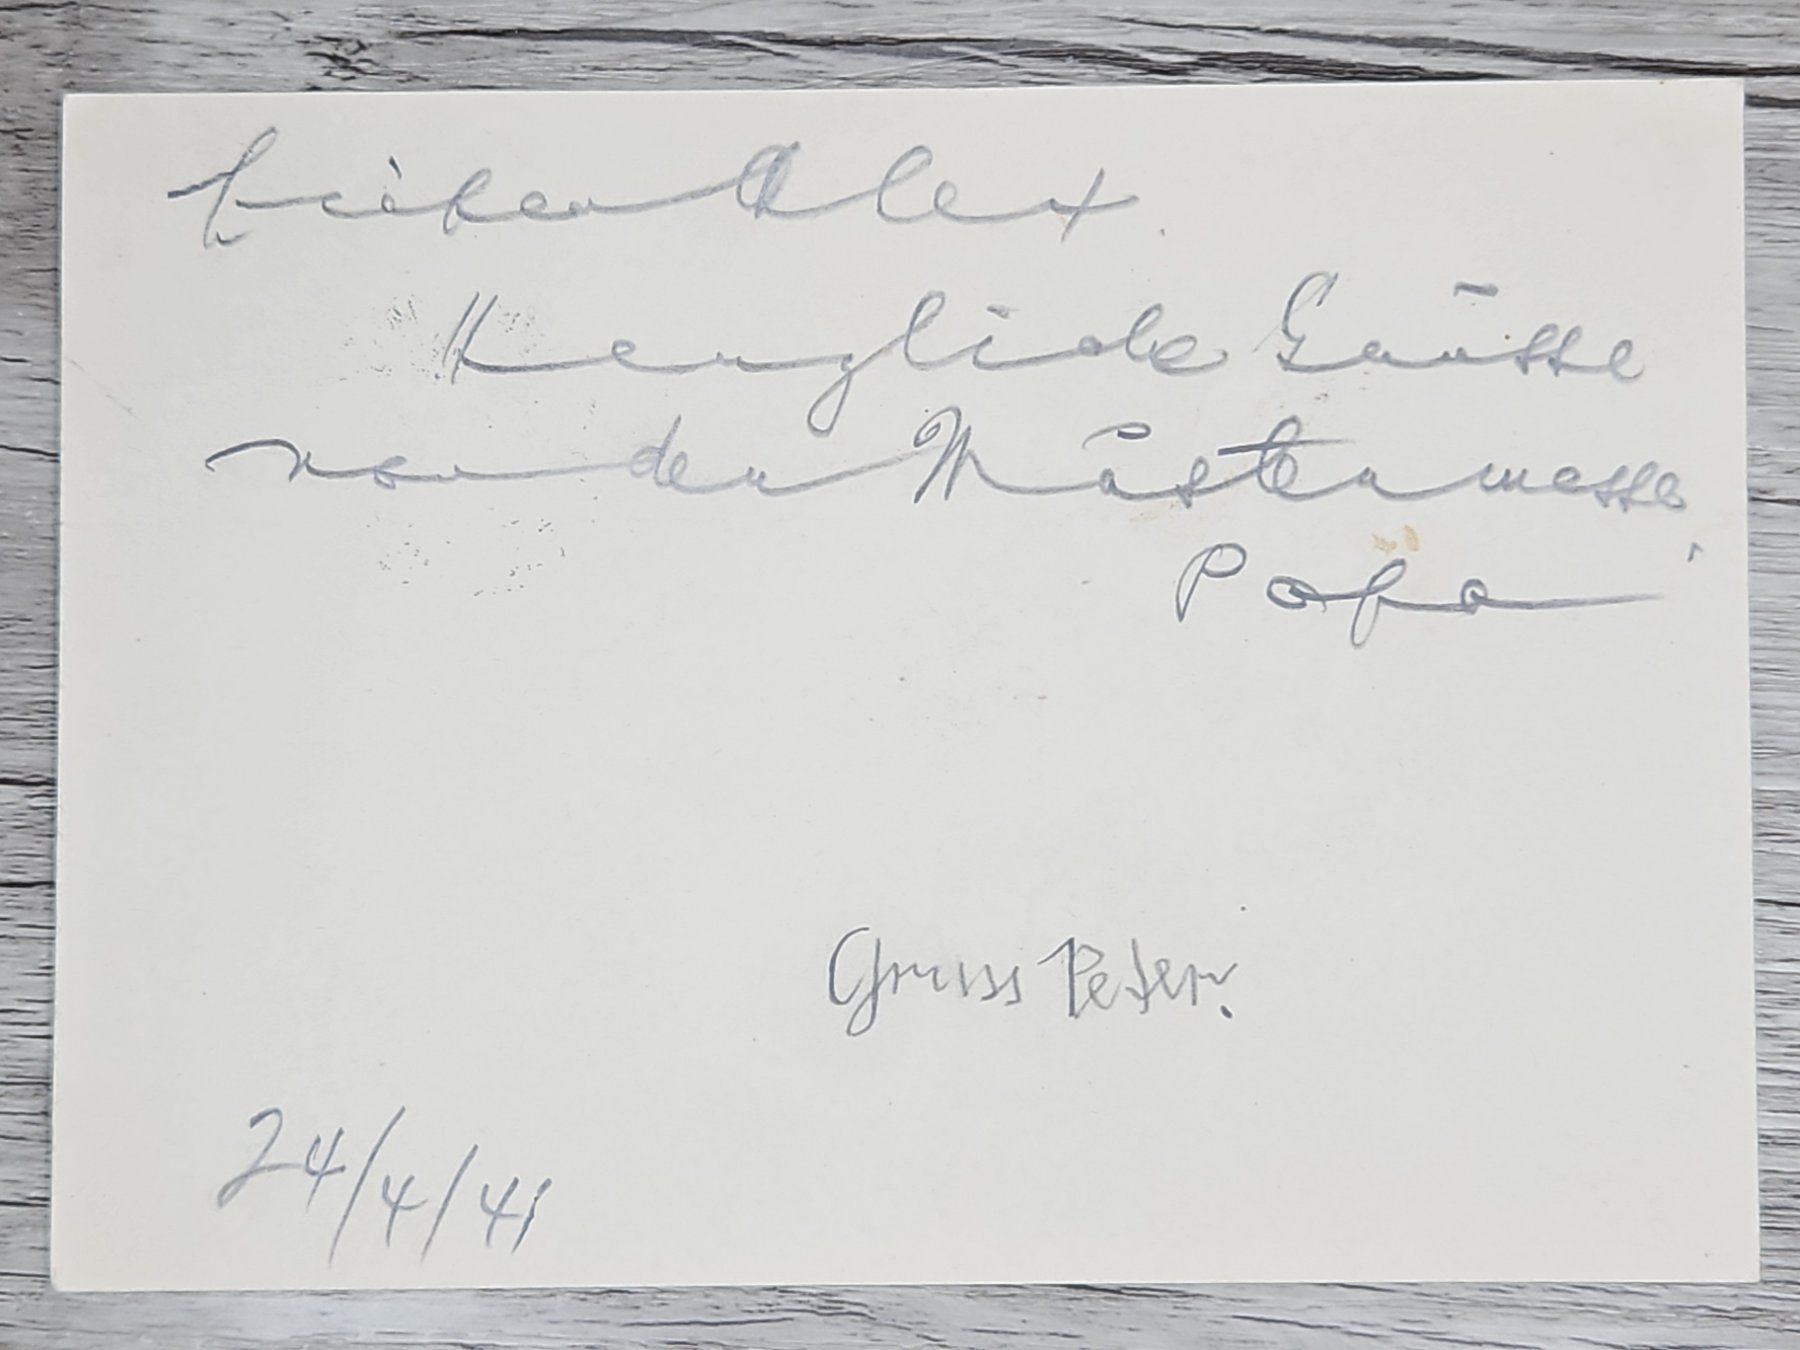 Lieber Alex
Herzliche Grüsse
von der Mustermesse
Papa
Gruss Peter.
24/4/41